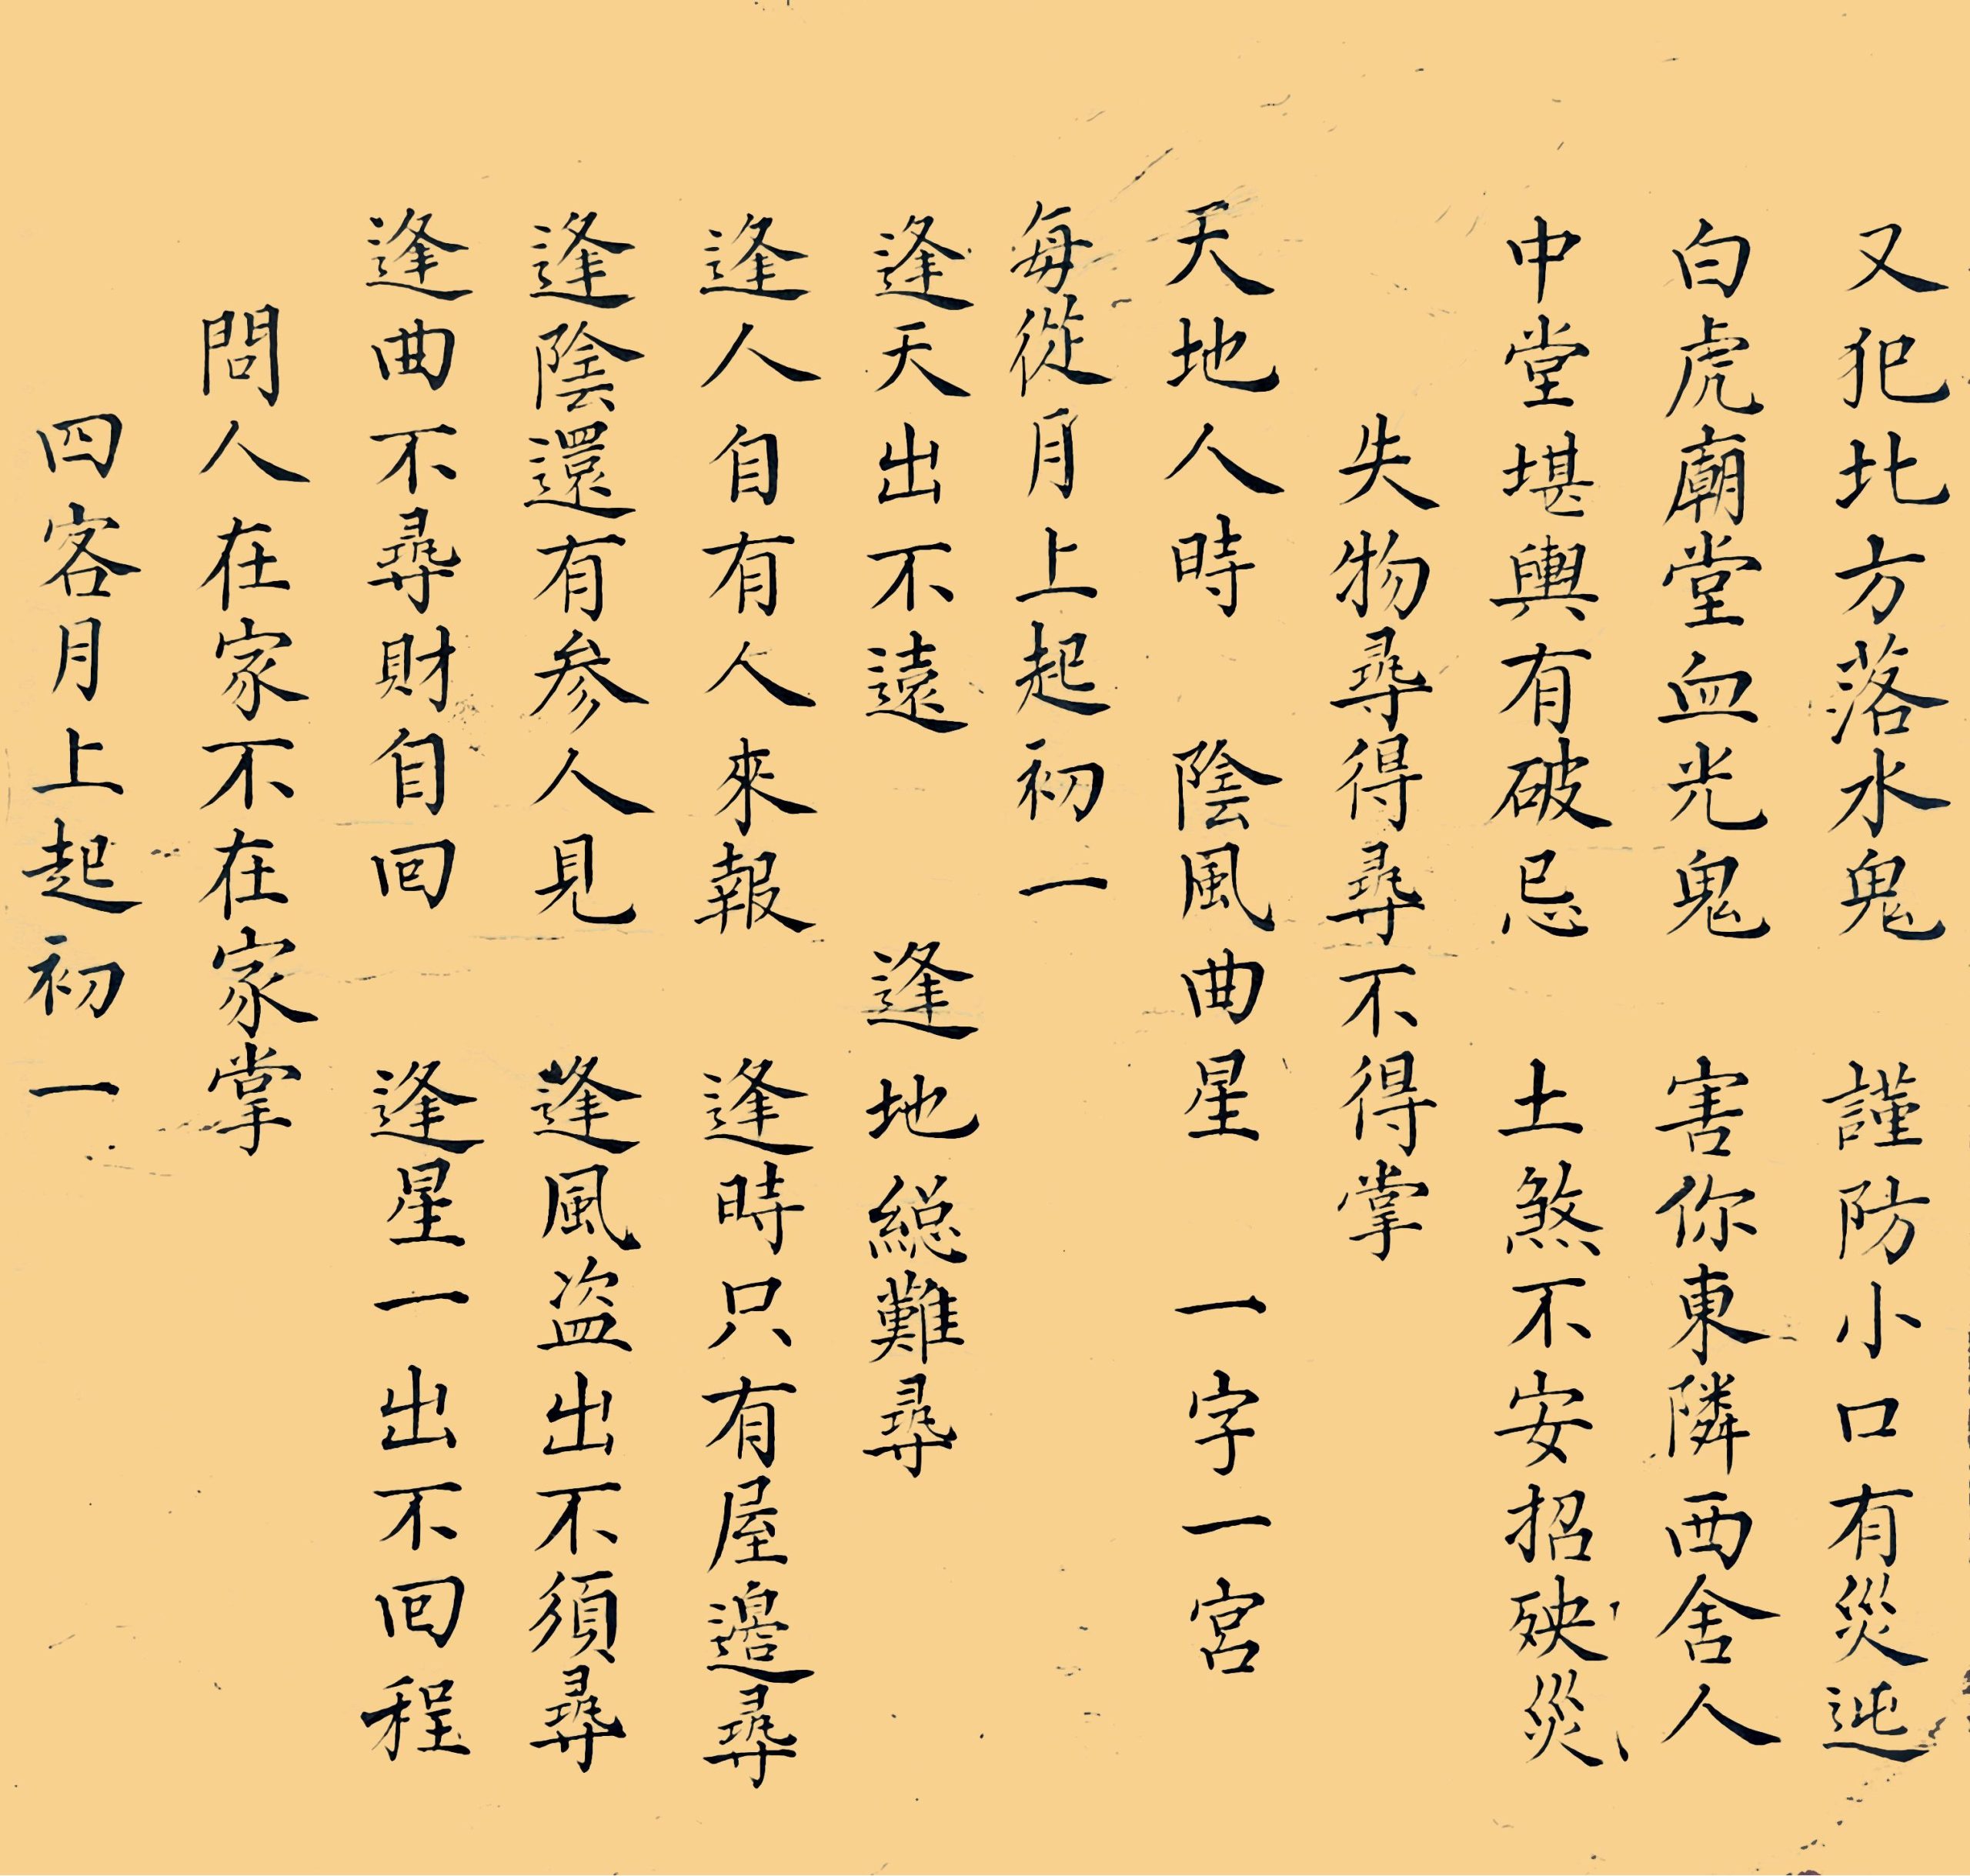 又犯北方落水鬼 謹防小口有災迍
白虎廟堂血光鬼 害你東隣西舍人
中堂堪輿有破忌 土煞不安招殃災
失物尋得尋不得掌
天地人時 陰風曲星 一字一宮
每從月上起初一
逢天出不遠 逢地総難尋
逢人自有人來報 逢時只有屋邉尋
逢陰還有参人見 逢風盗出不須尋
逢曲不尋財自回 逢星一出不回程
問人在家不在家掌
四客月上起初一